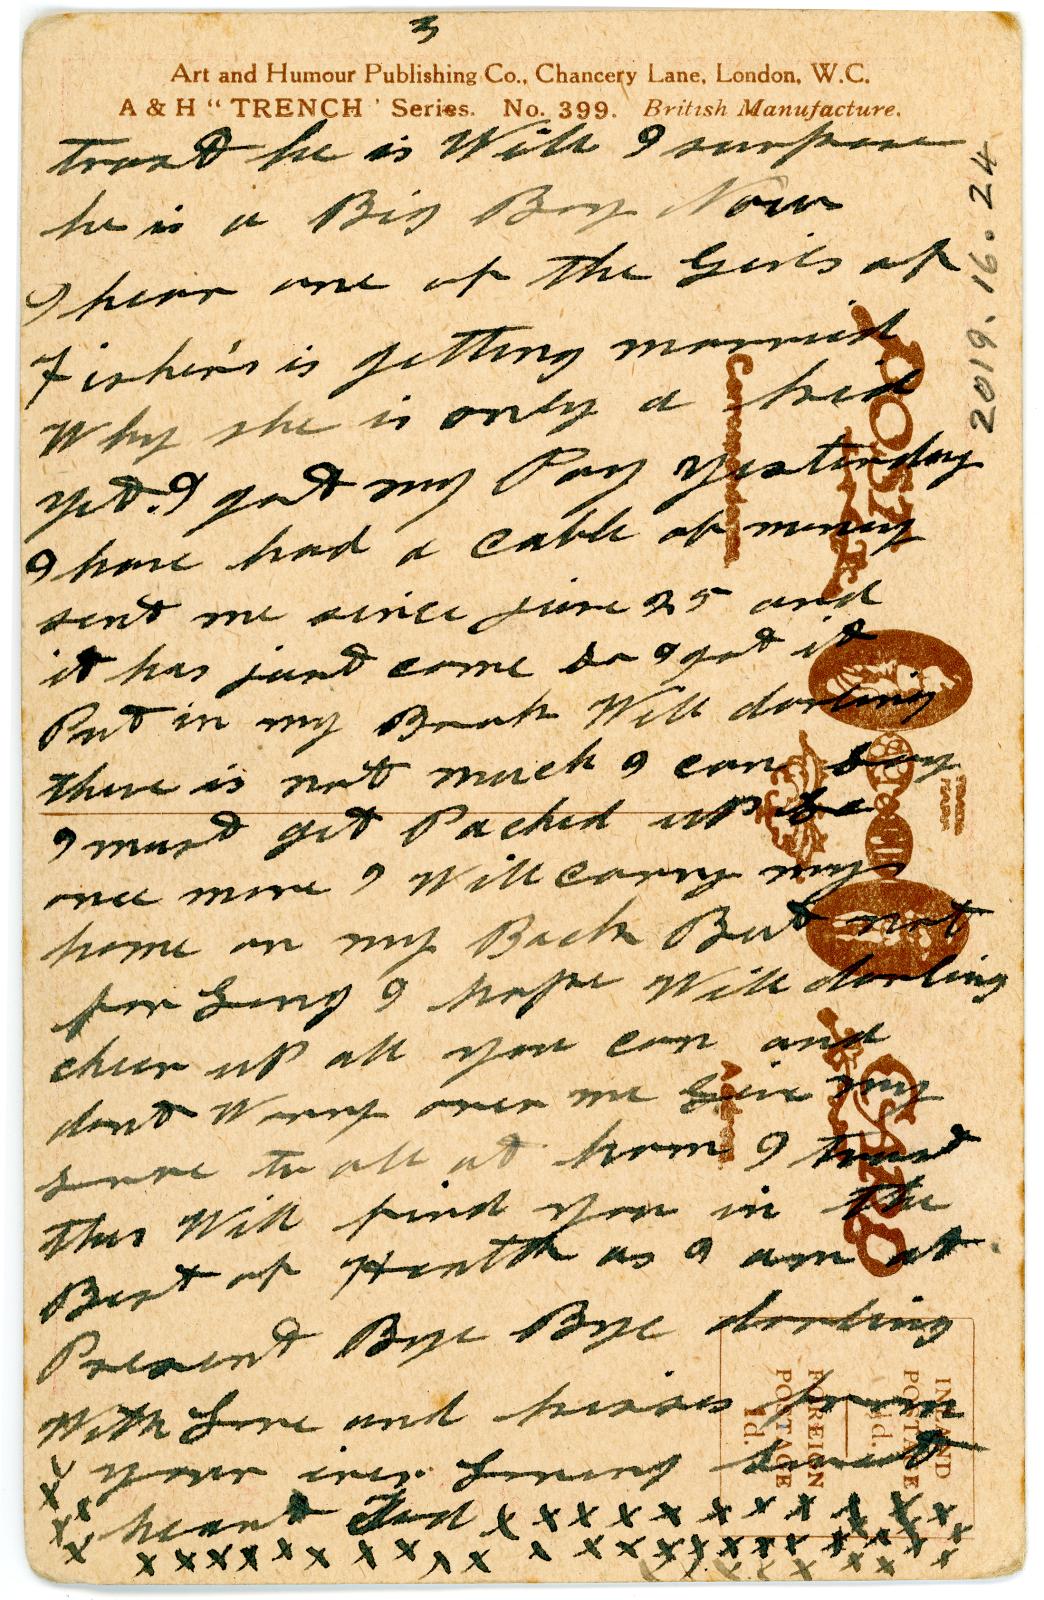 3
Art and Humour Publishing Co., Chancery Lane, London, W.C.
A & H "TRENCH' Series. No. 399. British Manufacture.
trust he is Will I surpose
he is a Big Boy Now
I hear one of the Girls of
Fisher's is getting married
Why she is only a kid
yet. I got my Pay yesterday
I have had a cable of money
sent me since june 25 and
it has just come so I got it
Put in my Book Will darling
there is not much I can say
I must get Packed up so
once more I Will carry my
home on my Back But not
for Long I hope Will darling
cheer up all you can and
dont Worry over me Give my
Love to all at home I trust
this Will find you in the
Best of Health as I am at
Present Bye Bye darling
With Love and kisses from
your ever Loving sweet
heart Ted x x x x x x x x x x x x
x x x x x x x x x x x x x x x x x x x x x x
2019.16.24
POST CARD
Correspondence
Address
INLAND
POSTAGE
½d.
FOREIGN
POSTAGE
1d.